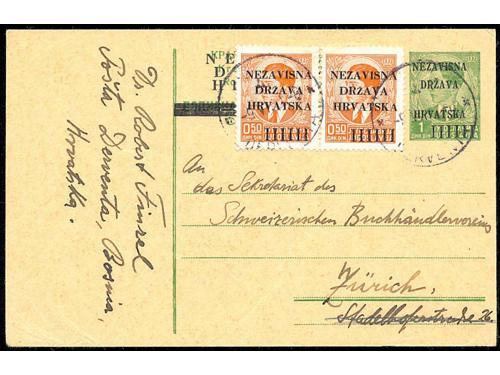 NEZAVISNA
DRŽAVA
HRVATSKA
0.50
NEZAVISNA
DRŽAVA
HRVATSKA
0.50
NEZAVISNA
DRŽAVA
HRVATSKA
1
Dr. Robert Finzel
Pošta Derventa, Bosnia,
Hrvatska.
An
das Sekretariat des
Schweizerischen Buchhändlervereins
Zürich,
Stadelhoferstraße 26.